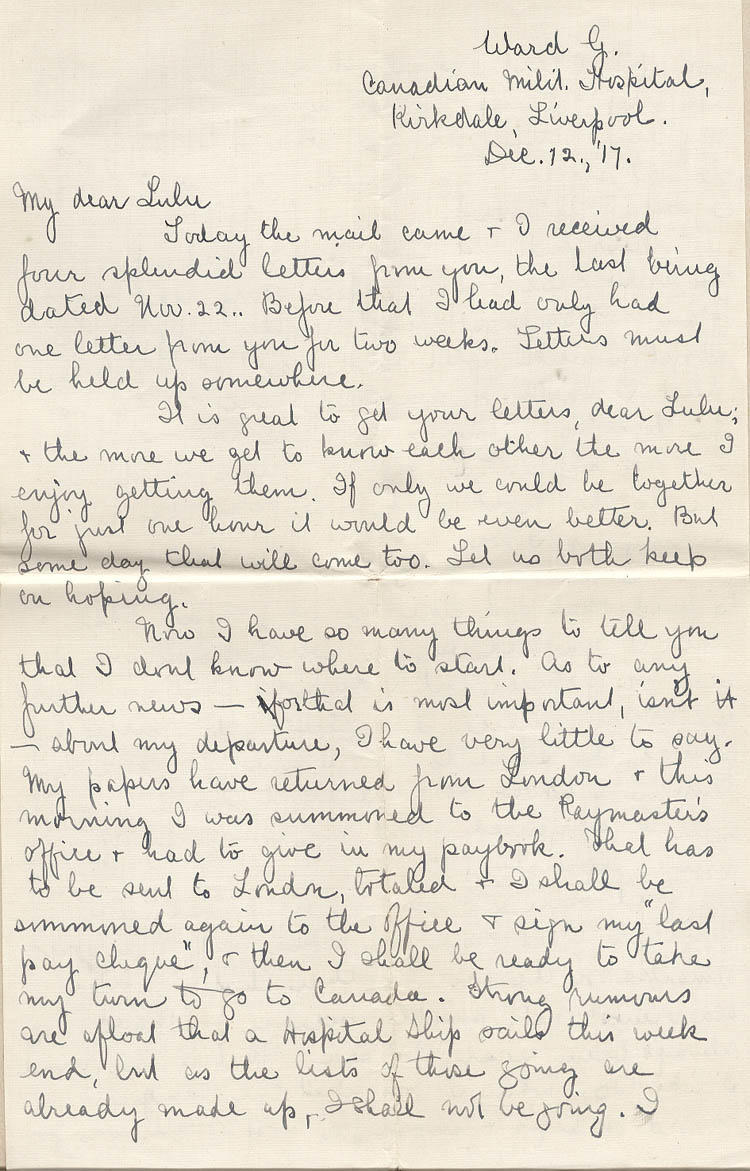 Ward G.
Canadian Milit. Hospital,
Kirkdale, Liverpool.
Dec. 12., '17.
My dear Lulu
Today the mail came + I received
four splendid letters from you, the last being
dated Nov. 22.. Before that I had only had
one letter from you for two weeks. Letters must
be held up somewhere.
It is great to get your letters, dear Lulu;
+ the more we get to know each other the more I
enjoy getting them. If only we could be together
for just one hour it would be even better. But
some day that will come too. Let us both keep
on hoping.
Now I have so many things to tell you
that I dont know where to start. As to any
further news — for that is most important, isn't it
— about my departure, I have very little to say.
My papers have returned from London + this
morning I was summoned to the Paymaster's
office + had to give in my paybook. That has
to be sent to London, totaled + I shall be
summoned again to the office + sign my "last
pay cheque", + then I shall be ready to take
my turn to go to Canada. Strong rumours
are afloat that a Hospital Ship sails this week
end, but as the lists of those going are
already made up, I shall not be going. I